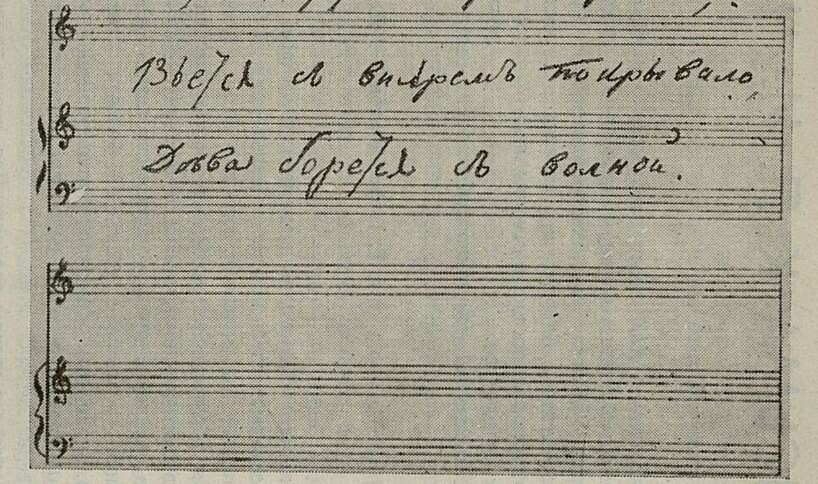 Вьется съ вихремъ покрывало,
Дѣва борется съ волной.